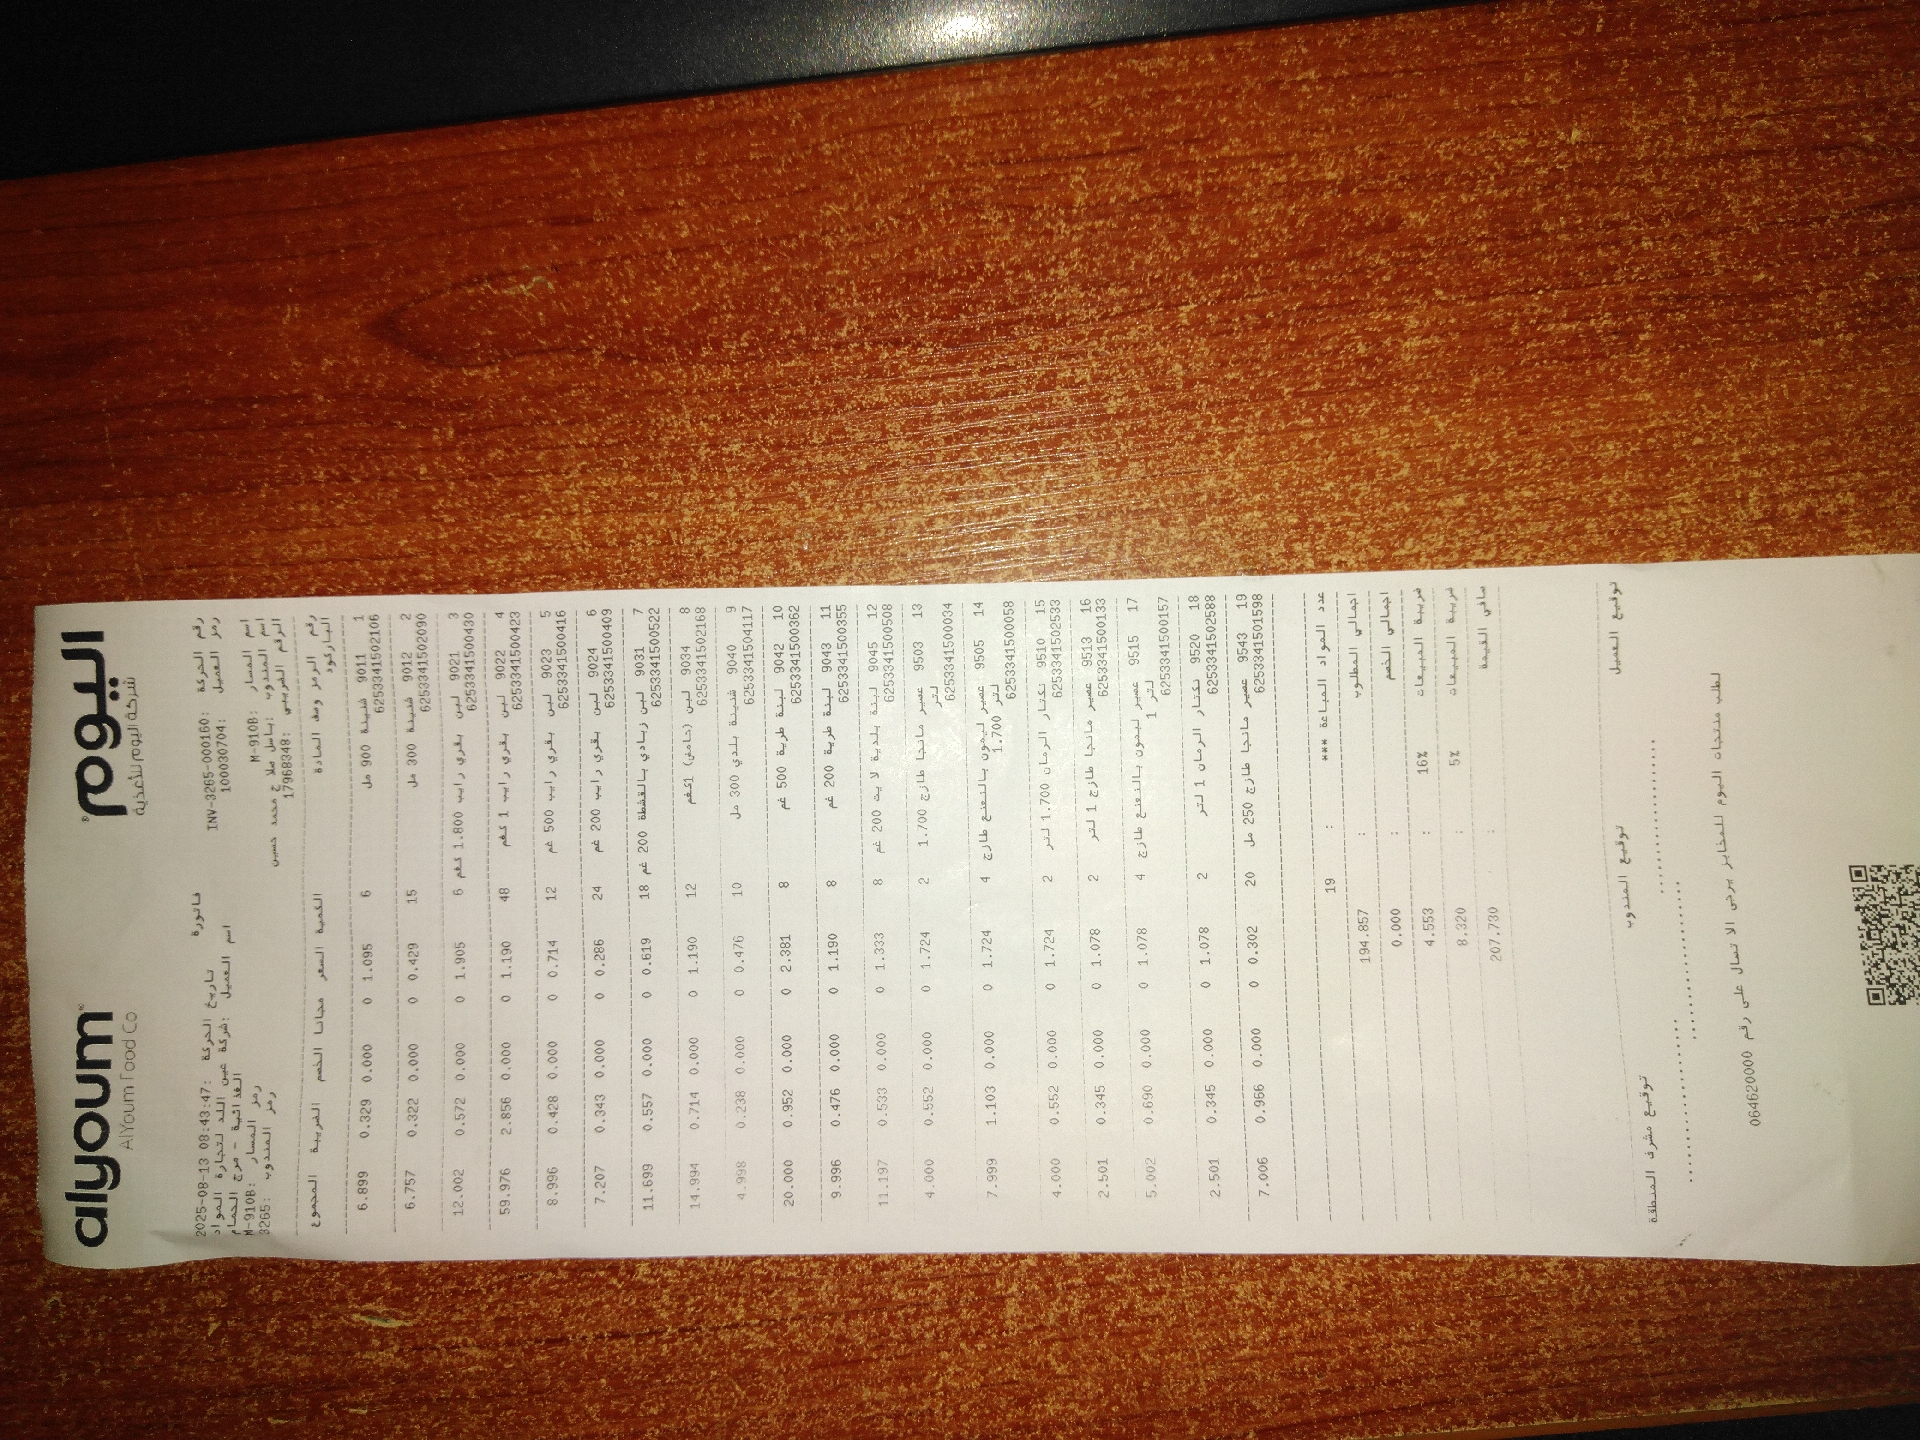 alyoum اليوم
Al Youm Food Co شركة اليوم للأغذية
فاتورة
رقم الحركة :INV-3265-000160 تاريخ الحركة :2025-08-13 08:43:47
رمز العميل :100030704 اسم العميل :شركة عين اللد لتجارة المواد
الغذائية - مرج الحمام
اسم المسار :M-910B رمز المسار :M-910B
اسم المندوب :باسل صلاح محمد حسين رمز المندوب :3265
الرقم الضريبي :17968348
رقم الرمز وصف المادة الكمية السعر مجانا الخصم الضريبة المجموع
الباركود
1 9011 شنينة 900 مل 6 1.095 0 0.000 0.329 6.899
6253341502106
2 9012 شنينة 300 مل 15 0.429 0 0.000 0.322 6.757
6253341502090
3 9021 لبن بقري رايب 1.800 كغم 6 1.905 0 0.000 0.572 12.002
6253341500430
4 9022 لبن بقري رايب 1 كغم 48 1.190 0 0.000 2.856 59.976
6253341500423
5 9023 لبن بقري رايب 500 غم 12 0.714 0 0.000 0.428 8.996
6253341500416
6 9024 لبن بقري رايب 200 غم 24 0.286 0 0.000 0.343 7.207
6253341500409
7 9031 لبن زبادي بالقشطة 200 غم 18 0.619 0 0.000 0.557 11.699
6253341500522
8 9034 لبن (حامض) 1كغم 12 1.190 0 0.000 0.714 14.994
6253341502168
9 9040 شنينة بلدي 300 مل 10 0.476 0 0.000 0.238 4.998
6253341504117
10 9042 لبنة طرية 500 غم 8 2.381 0 0.000 0.952 20.000
6253341500362
11 9043 لبنة طرية 200 غم 8 1.190 0 0.000 0.476 9.996
6253341500355
12 9045 لبنة بلدية لايت 200 غم 8 1.333 0 0.000 0.533 11.197
6253341500508
13 9503 عصير مانجا طازج 1.700 2 1.724 0 0.000 0.552 4.000
لتر
6253341500034
14 9505 عصير ليمون بالنعنع طازج 4 1.724 0 0.000 1.103 7.999
1.700 لتر
6253341500058
15 9510 نكتار الرمان 1.700 لتر 2 1.724 0 0.000 0.552 4.000
6253341502533
16 9513 عصير مانجا طازج 1 لتر 2 1.078 0 0.000 0.345 2.501
6253341500133
17 9515 عصير ليمون بالنعنع طازج 4 1.078 0 0.000 0.690 5.002
1 لتر
6253341500157
18 9520 نكتار الرمان 1 لتر 2 1.078 0 0.000 0.345 2.501
6253341502588
19 9543 عصير مانجا طازج 250 مل 20 0.302 0 0.000 0.966 7.006
6253341501598
عدد المواد المباعة *** : 19
اجمالي المطلوب : 194.857
اجمالي الخصم : 0.000
ضريبة المبيعات 16% : 4.553
ضريبة المبيعات 5% : 8.320
صافي القيمة : 207.730
توقيع العميل توقيع المندوب توقيع مشرف المنطقة
لطلب منتجات اليوم للمخابز يرجى الاتصال على رقم 064620000